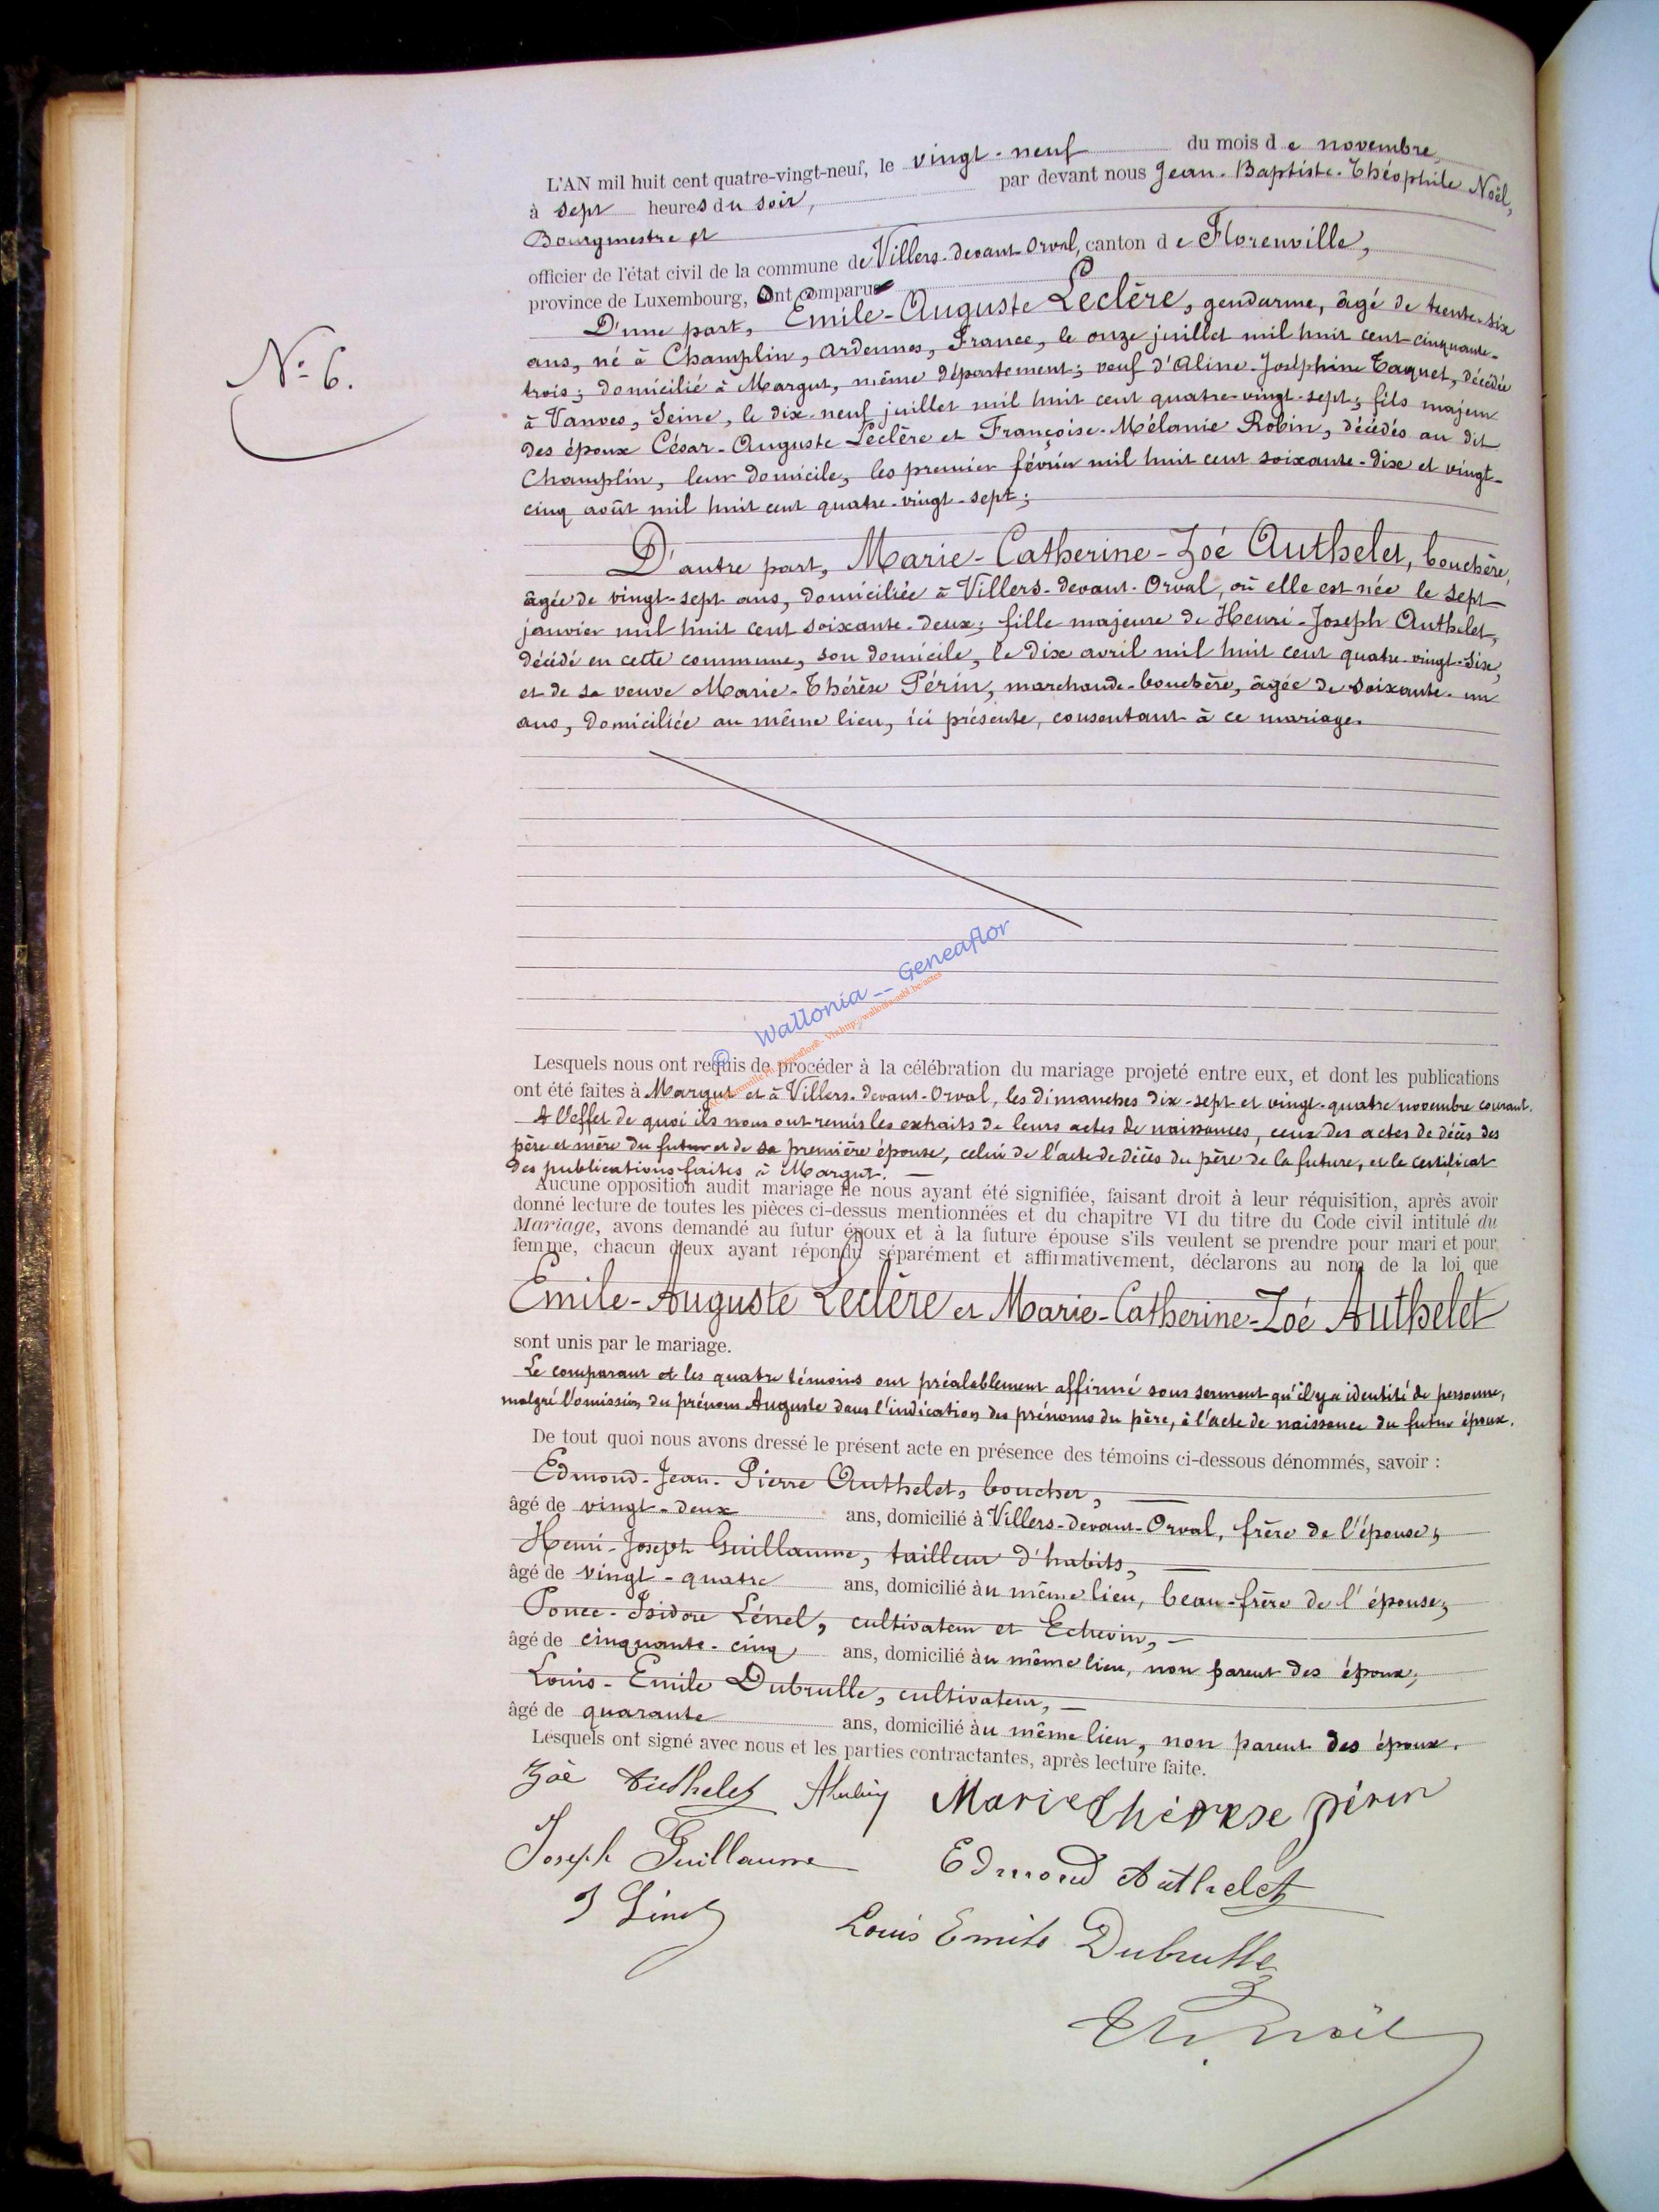 L'AN mil huit cent quatre-vingt-neuf, le vingt-neuf du mois de novembre,
à sept heures du soir, par devant nous Jean-Baptiste-Théophile Noël,
Bourgmestre et
officier de l'état civil de la commune de Villers-devant-Orval, canton de Florenville,
province de Luxembourg, Ont comparu
N° 6.
D'une part, Emile-Auguste Leclère, gendarme, âgé de trente-six
ans, né à Champlin, Ardennes, France, le onze juillet mil huit cent cinquante-
trois; domicilié à Margut, même département; veuf d'Aline-Joséphine Taquet, décédée
à Vanves, Seine, le dix-neuf juillet mil huit cent quatre-vingt-sept; fils majeur
des époux César-Auguste Leclère et Françoise-Mélanie Robin, décédés au dit
Champlin, leur domicile, les premier février mil huit cent soixante-dix et vingt-
cinq août mil huit cent quatre-vingt-sept;
D'autre part, Marie-Catherine-Zoé Authelet, bouchère,
âgée de vingt-sept ans, domiciliée à Villers-devant-Orval, où elle est née le sept
janvier mil huit cent soixante-deux; fille majeure de Henri-Joseph Authelet,
décédé en cette commune, son domicile, le dix avril mil huit cent quatre-vingt-six,
et de sa veuve Marie-Thérèse Périn, marchande-bouchère, âgée de soixante-un
ans, domiciliée au même lieu, ici présente, consentant à ce mariage.
© Wallonia -- Geneaflor
Lesquels nous ont requis de procéder à la célébration du mariage projeté entre eux, et dont les publications
ont été faites à Margut et à Villers-devant-Orval, les dimanches dix-sept et vingt-quatre novembre courant.
A l'effet de quoi ils nous ont remis les extraits de leurs actes de naissances, ceux des actes de décès des
père et mère du futur et de sa première épouse, celui de l'acte de décès du père de la future, et le certificat
des publications faites à Margut.
Aucune opposition audit mariage ne nous ayant été signifiée, faisant droit à leur réquisition, après avoir
donné lecture de toutes les pièces ci-dessus mentionnées et du chapitre VI du titre du Code civil intitulé du
Mariage, avons demandé au futur époux et à la future épouse s'ils veulent se prendre pour mari et pour
femme, chacun d'eux ayant répondu séparément et affirmativement, déclarons au nom de la loi que
Emile-Auguste Leclère et Marie-Catherine-Zoé Authelet
sont unis par le mariage.
Le comparant et les quatre témoins ont préalablement affirmé sous serment qu'il y a identité de personne,
malgré l'omission du prénom Auguste dans l'indication des prénoms du père, à l'acte de naissance du futur époux.
De tout quoi nous avons dressé le présent acte en présence des témoins ci-dessous dénommés, savoir :
Edmond-Jean-Pierre Authelet, boucher,
âgé de vingt-deux ans, domicilié à Villers-devant-Orval, frère de l'épouse;
Henri-Joseph Guillaume, tailleur d'habits,
âgé de vingt-quatre ans, domicilié au même lieu, beau-frère de l'épouse;
Ponce-Isidore Lénel, cultivateur et Echevin,
âgé de cinquante-cinq ans, domicilié au même lieu, non parent des époux;
Louis-Emile Dubrulle, cultivateur,
âgé de quarante ans, domicilié au même lieu, non parent des époux.
Lesquels ont signé avec nous et les parties contractantes, après lecture faite.
Zoé Authelet Marie thérese périn
Joseph Guillaume Edmond Authelet
Louis Emile Dubrulle
Th. Noël